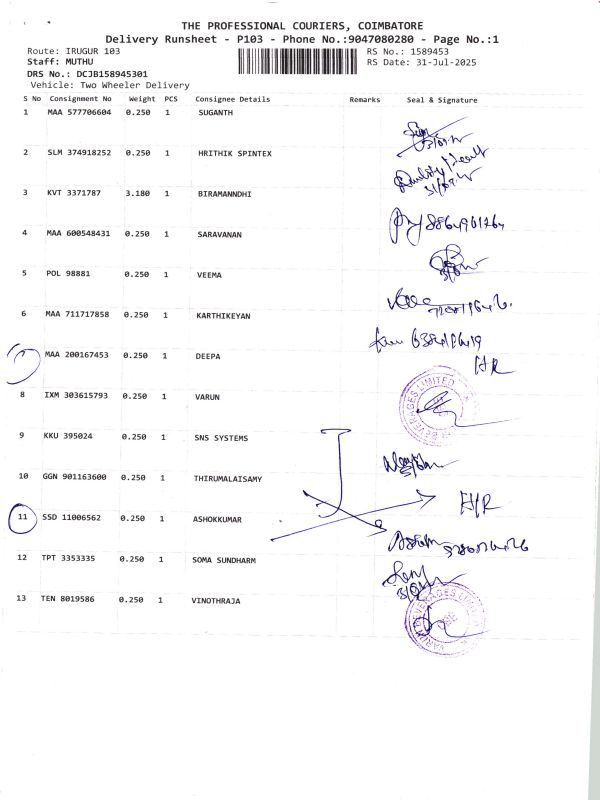 THE PROFESSIONAL COURIERS, COIMBATORE
Delivery Runsheet - P103 - Phone No.:9047080280 - Page No.:1
Route: IRUGUR 103
RS No.: 1589453
Staff: MUTHU
RS Date: 31-Jul-2025
DRS No.: DCJB158945301
Vehicle: Two Wheeler Delivery
S No Consignment No Weight PCS Consignee Details Remarks Seal & Signature
1 MAA 577706604 0.250 1 SUGANTH
2 SLM 374918252 0.250 1 HRITHIK SPINTEX
3 KVT 3371787 3.180 1 BIRAMANNDHI
4 MAA 600548431 0.250 1 SARAVANAN
5 POL 98881 0.250 1 VEEMA
6 MAA 711717858 0.250 1 KARTHIKEYAN
MAA 200167453 0.250 1 DEEPA
H/R
8 IXM 303615793 0.250 1 VARUN
9 KKU 395024 0.250 1 SNS SYSTEMS
10 GGN 901163600 0.250 1 THIRUMALAISAMY
H/R
11 SSD 11006562 0.250 1 ASHOKKUMAR
12 TPT 3353335 0.250 1 SOMA SUNDHARM
13 TEN 8019586 0.250 1 VINOTHRAJA